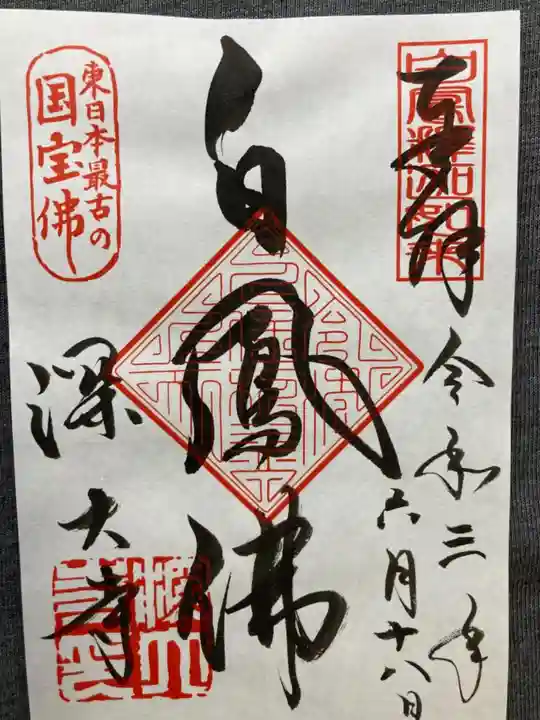 奉拝
令和三年
六月十八日
白鳳佛
東日本最古の
国宝佛
深大寺